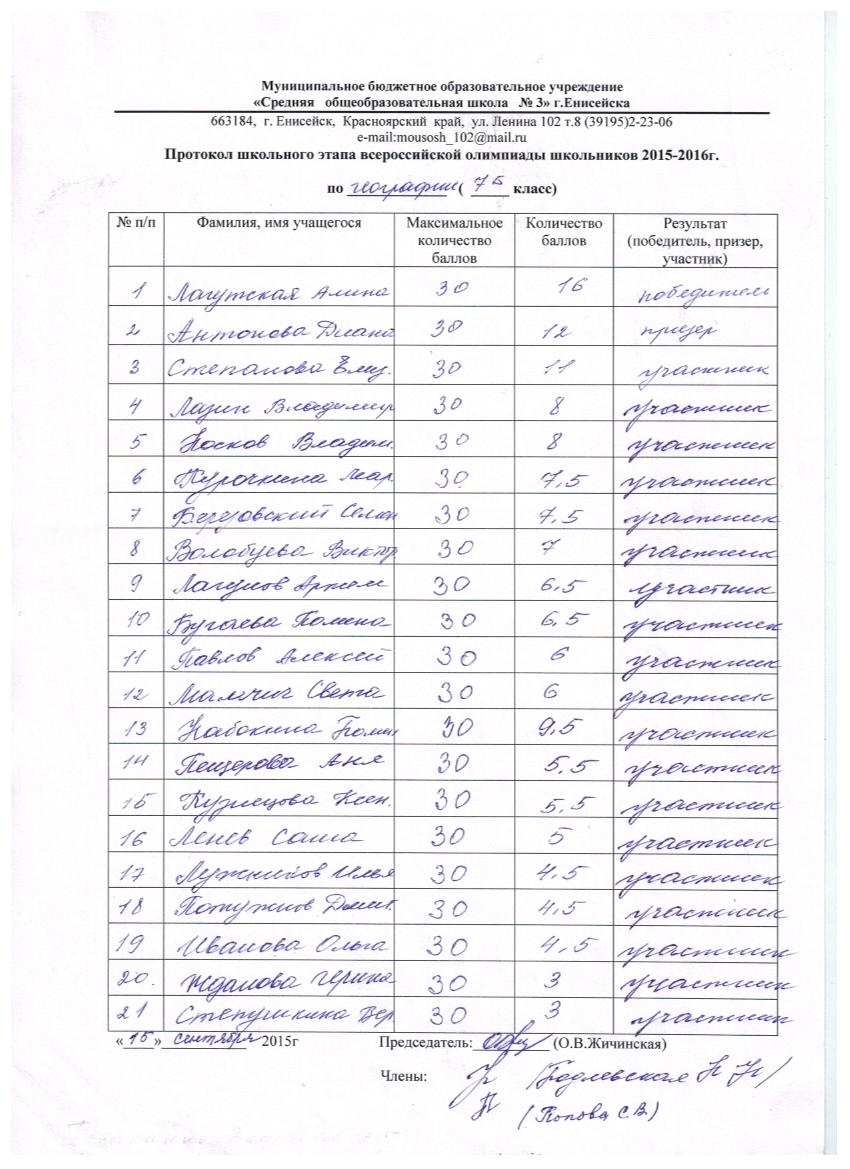 Муниципальное бюджетное образовательное учреждение
«Средняя общеобразовательная школа № 3» г.Енисейска
663184, г. Енисейск, Красноярский край, ул. Ленина 102 т.8 (39195)2-23-06
e-mail:mousosh_102@mail.ru
Протокол школьного этапа всероссийской олимпиады школьников 2015-2016г.
по географии ( 7Б класс)
№ п/п Фамилия, имя учащегося Максимальное количество баллов Количество баллов Результат (победитель, призер, участник)
1 Лагутская Алина 30 16 победитель
2 Антонова Диана 30 12 призер
3 Степанова Елиз. 30 11 участник
4 Лазин Владимир 30 8 участник
5 Носков Владим. 30 8 участник
6 Курочкина Мар 30 7,5 участник
7 Березовский Семен 30 7,5 участник
8 Волобуева Виктор 30 7 участник
9 Лагунов Артем 30 6,5 участник
10 Бугаева Полина 30 6,5 участник
11 Павлов Алексей 30 6 участник
12 Мамчиг Света 30 6 участник
13 Набокина Полин 30 9,5 участник
14 Пещерова Аня 30 5,5 участник
15 Кузнецова Ксен. 30 5,5 участник
16 Ленев Саша 30 5 участник
17 Лужников Илья 30 4,5 участник
18 Потужнов Дмит. 30 4,5 участник
19 Иванова Ольга 30 4,5 участник
20. Жданова 30 3 участник
21 Степушкина Вер 30 3 участник
«15» сентября 2015г Председатель: (О.В.Жичинская)
Члены: (Подлевская Н
(Попова С.В.)